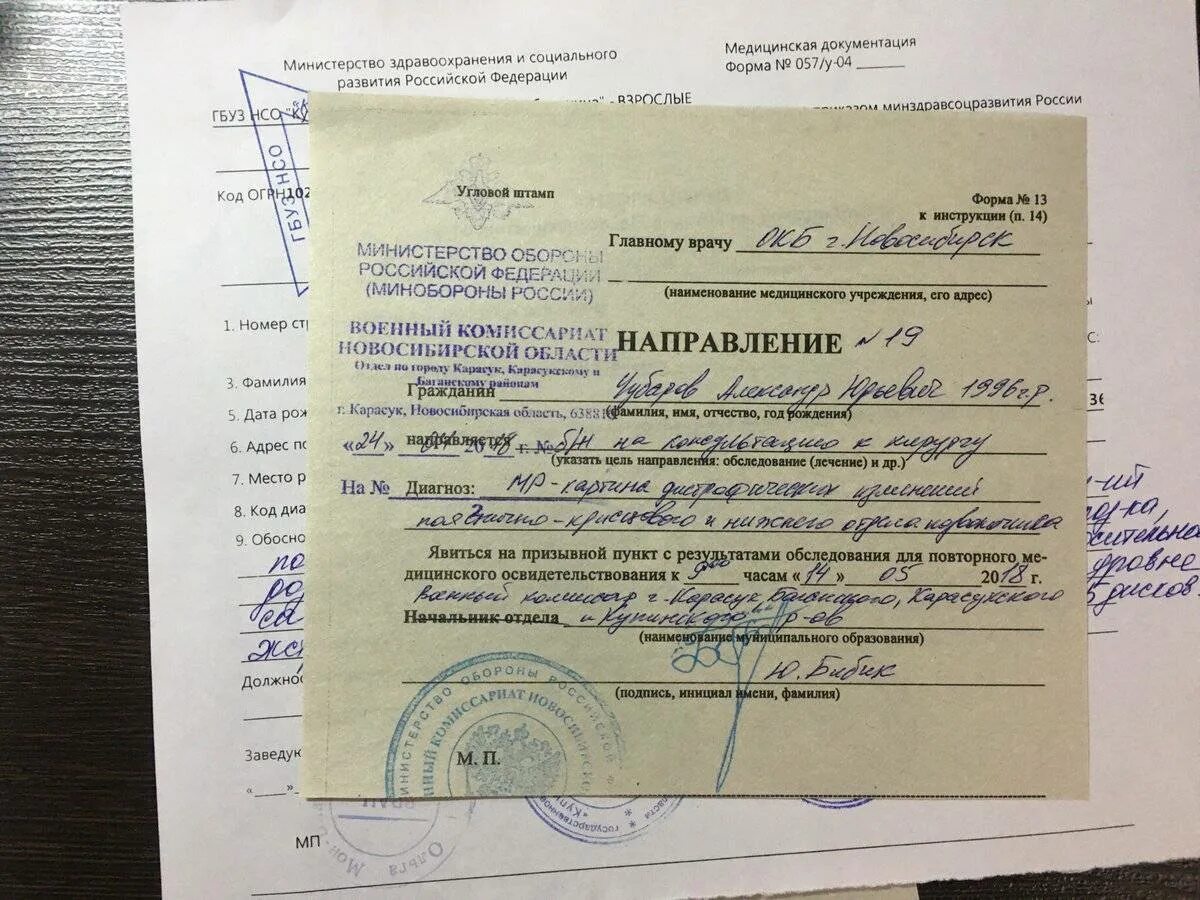 Министерство здравоохранения и социального
развития Российской Федерации
Медицинская документация
Форма № 057/у-04
ГБУЗ НСО "Ку
- ВЗРОСЛЫЕ
приказом минздравсоцразвития России
ГБУЗ НСО
Код ОГРН 102
1. Номер стр
3. Фамилия
5. Дата рож
6. Адрес по
7. Место р
8. Код диа
9. Обосно
по
до
са
жс
-ий
дисков.
Должнос
Заведук
МП
Угловой штамп
Форма № 13
к инструкции (п. 14)
МИНИСТЕРСТВО ОБОРОНЫ
РОССИЙСКОЙ ФЕДЕРАЦИИ
(МИНОБОРОНЫ РОССИИ)
ВОЕННЫЙ КОМИССАРИАТ
НОВОСИБИРСКОЙ ОБЛАСТИ
Отдел по городу Карасук, Карасукскому и
Баганскому районам
г. Карасук, Новосибирская область, 6388
«24» 04 2018 г. № б/н
На №
Главному врачу ОКБ г. Новосибирск
(наименование медицинского учреждения, его адрес)
НАПРАВЛЕНИЕ №19
Гражданин Чубаров Александр Юрьевич 1996 г.р.
(фамилия, имя, отчество, год рождения)
направляется на консультацию к хирургу
(указать цель направления: обследование (лечение) и др.)
Диагноз: МР-картина дистрофических изменений
пояснично-крестцового и нижнего отдела позвоночника
Явиться на призывной пункт с результатами обследования для повторного ме-
дицинского освидетельствования к 9 00 часам «14» 05 2018 г.
военный комиссар г. Карасук, Баганского, Карасукского
Начальник отдела и Купинского р-ов
(наименование муниципального образования)
Ю. Бибик
(подпись, инициал имени, фамилия)
М. П.
МИНИСТЕРСТВО ОБОРОНЫ РОССИЙСКОЙ
ВОЕННЫЙ КОМИССАРИАТ НОВОСИБИРСКО
государственно
ВРАЧ
Ольга